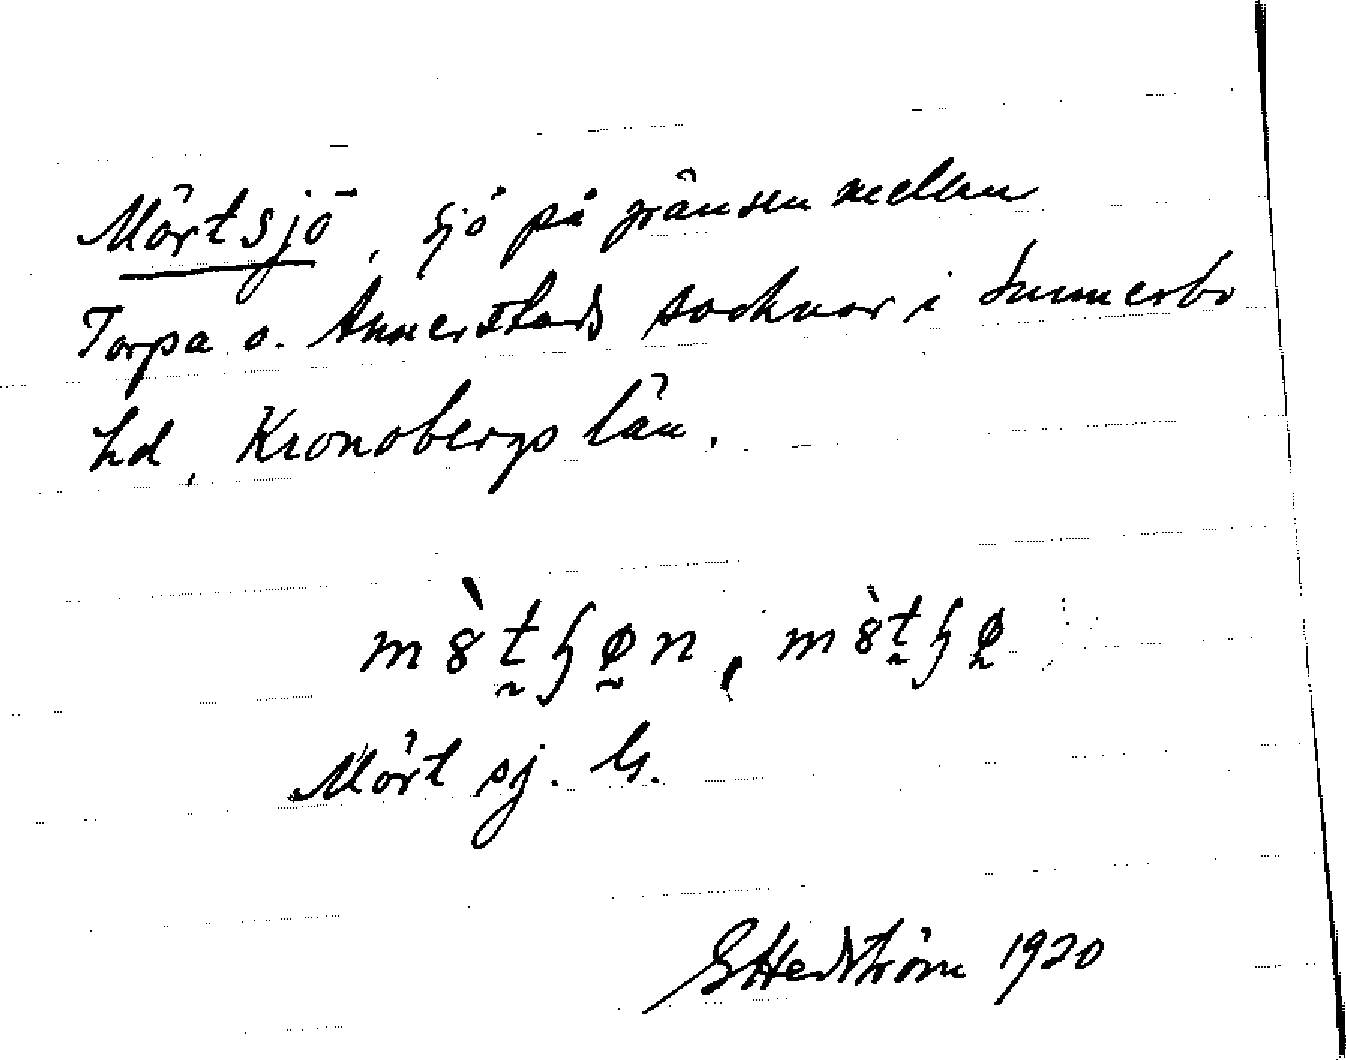 Mörtsjö, sjö på gränsen mellan
Torpa o. Annerstads socknar i Sunnerbo
hd, Kronobergs län.
Mört sj. G.
G Hedström 1920